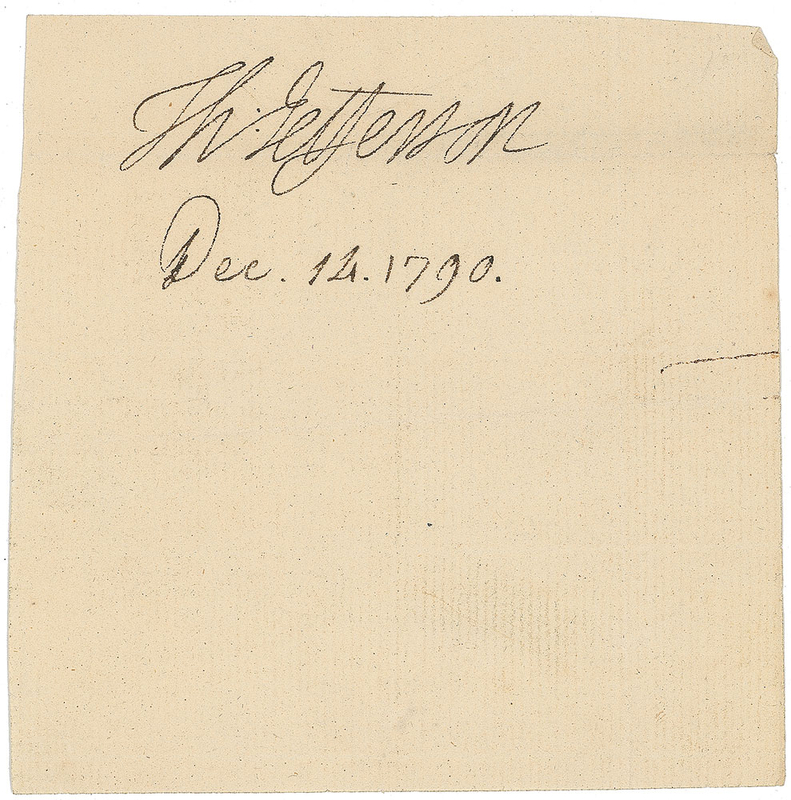 Th: Jefferson
Dec. 14. 1790.